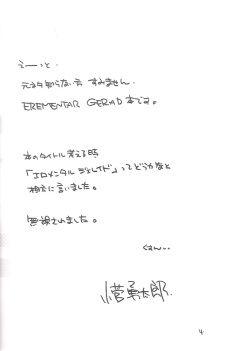 えーっと.
元ネタ知らない方 すみません.
EREMENTAR GERAD 本です。
本のタイトル考える時
「エロメンタル ジェレイド」ってどうかなと
相方に言いました。
無視されました。
くすん..
菅勇太郎.
4